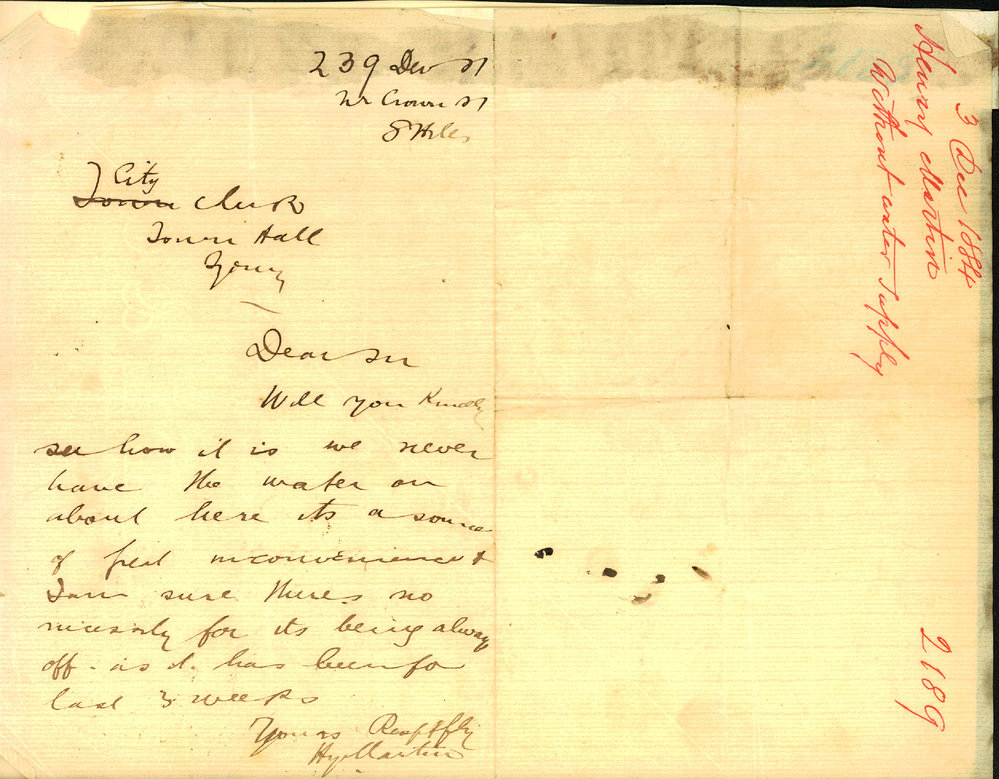 239 Dev St
Nr Crown St
S Hills
City
Town Clerk
Town Hall
Dear Sir
Will you Kindly
see how it is we never
have the water on
about here its a source
of great inconvenience &
I am sure theres no
necessity for its being always
off - as it has been for
last 3 weeks
Yours Respffly
Hy Martin
3 Dec 1884
Henry Martin
Without water supply
2189